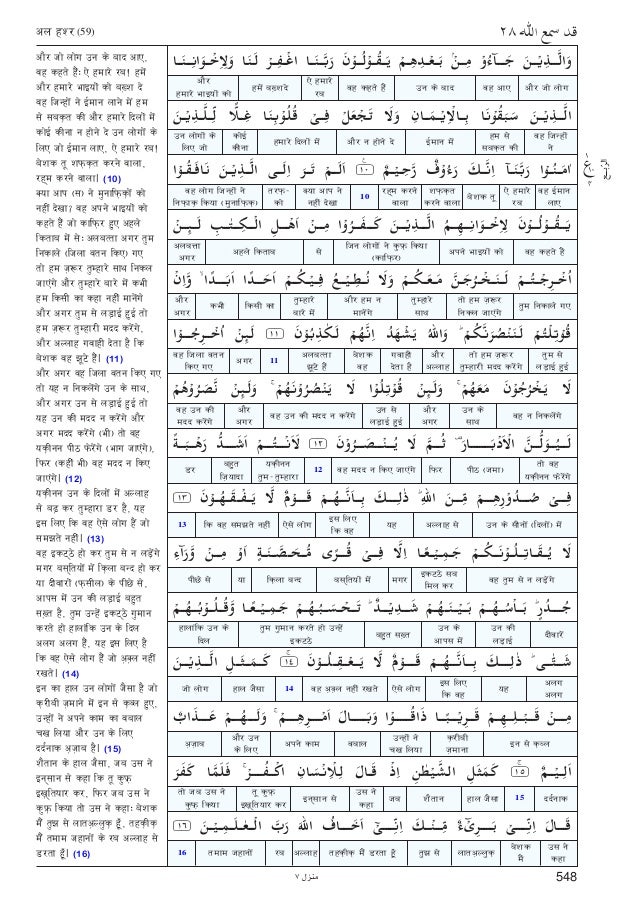 अल हश्र (59)
قد سمع الله ٢٨
और जो लोग उन के बाद आए,
वह कहते हैं: ऐ हमारे रब! हमें
और हमारे भाइयों को बख़्श दे
वह जिन्हों ने ईमान लाने में हम
से सबक़त की और हमारे दिलों में
कोई कीना न होने दे उन लोगों के
लिए जो ईमान लाए, ऐ हमारे रब!
बेशक तू शफ़्क़त करने वाला,
रह्म करने वाला। (10)
क्या आप (स) ने मुनाफ़िक़ों को
नहीं देखा? वह अपने भाइयों को
कहते हैं जो काफ़िर हुए अहले
किताब में से: अलबत्ता अगर तुम
निकाले (जिला वतन किए) गए
तो हम ज़रूर तुम्हारे साथ निकल
जाएंगे और तुम्हारे बारे में कभी
हम किसी का कहा नहीं मानेंगे
और अगर तुम से लड़ाई हुई तो
हम ज़रूर तुम्हारी मदद करेंगे,
और अल्लाह गवाही देता है कि
बेशक वह झूटे हैं। (11)
और अगर वह जिला वतन किए गए
तो यह न निकलेंगे उन के साथ,
और अगर उन से लड़ाई हुई तो
यह उन की मदद न करेंगे और
अगर मदद करेंगे (भी) तो वह
यक़ीनन पीठ फेरेंगे (भाग जाएंगे),
फिर (कहीं भी) वह मदद न किए
जाएंगे। (12)
यक़ीनन उन के दिलों में अल्लाह
से बढ़ कर तुम्हारा डर है, यह
इस लिए कि वह ऐसे लोग हैं जो
समझते नहीं। (13)
वह इकट्ठे हो कर तुम से न लड़ेंगे
मगर बस्तियों में क़िला बन्द हो कर
या दीवारों (फ़सील) के पीछे से,
आपस में उन की लड़ाई बहुत
सख़्त है, तुम उन्हें इकट्ठे गुमान
करते हो हालांकि उन के दिल
अलग अलग हैं, यह इस लिए है
कि वह ऐसे लोग हैं जो अक़्ल नहीं
रखते। (14)
इन का हाल उन लोगों जैसा है जो
क़रीबी ज़माने में इन से क़ब्ल हुए,
उन्हों ने अपने काम का वबाल
चख लिया और उन के लिए
दर्दनाक अज़ाब है। (15)
शैतान के हाल जैसा, जब उस ने
इन्सान से कहा कि तू कुफ़्र
इख़्तियार कर, फिर जब उस ने
कुफ़्र किया तो उस ने कहा: बेशक
मैं तुझ से लातअल्लुक़ हूँ, तहक़ीक़
मैं तमाम जहानों के रब अल्लाह से
डरता हूँ। (16)
وَالَّذِيْنَ جَآءُوْ مِنْۢ بَعْدِهِمْ يَقُوْلُوْنَ رَبَّنَا اغْفِرْ لَنَا وَلِاِخْوَانِنَا
और जो लोग वह आए उन के बाद वह कहते हैं ऐ हमारे रब हमें बख़्शदे और हमारे भाइयों को
الَّذِيْنَ سَبَقُوْنَا بِالْاِيْمَانِ وَلَا تَجْعَلْ فِيْ قُلُوْبِنَا غِلًّا لِّلَّذِيْنَ
वह जिन्हों ने हम से सबक़त की ईमान में और न होने दे हमारे दिलों में कोई कीना उन लोगों के लिए जो
اٰمَنُوْا رَبَّنَآ اِنَّكَ رَءُوْفٌ رَّحِيْمٌ ١٠ اَلَمْ تَرَ اِلَى الَّذِيْنَ نَافَقُوْا
वह ईमान लाए ऐ हमारे रब बेशक तू शफ़्क़त करने वाला रह्म करने वाला 10 क्या आप ने नहीं देखा तरफ़-को वह लोग जिन्हों ने निफ़ाक़ किया (मुनाफ़िक़)
يَقُوْلُوْنَ لِاِخْوَانِهِمُ الَّذِيْنَ كَفَرُوْا مِنْ اَهْلِ الْكِتٰبِ لَىِٕنْ
वह कहते हैं अपने भाइयों को जिन लोगों ने कुफ़्र किया (काफ़िर) से अहले किताब अलबत्ता अगर
اُخْرِجْتُمْ لَنَخْرُجَنَّ مَعَكُمْ وَلَا نُطِيْعُ فِيْكُمْ اَحَدًا اَبَدًا وَّاِنْ
तुम निकाले गए तो हम ज़रूर निकल जाएंगे तुम्हारे साथ और हम न मानेंगे तुम्हारे बारे में किसी का कभी और अगर
قُوْتِلْتُمْ لَنَنْصُرَنَّكُمْ وَاللّٰهُ يَشْهَدُ اِنَّهُمْ لَكٰذِبُوْنَ ١١ لَىِٕنْ اُخْرِجُوْا
तुम से लड़ाई हुई तो हम ज़रूर तुम्हारी मदद करेंगे और अल्लाह गवाही देता है बेशक वह अलबत्ता झूटे हैं 11 अगर वह जिला वतन किए गए
لَا يَخْرُجُوْنَ مَعَهُمْ وَلَىِٕنْ قُوْتِلُوْا لَا يَنْصُرُوْنَهُمْ وَلَىِٕنْ نَّصَرُوْهُمْ
वह न निकलेंगे उन के साथ और अगर उन से लड़ाई हुई वह उन की मदद न करेंगे और अगर वह उन की मदद करेंगे
لَيُوَلُّنَّ الْاَدْبَارَ ثُمَّ لَا يُنْصَرُوْنَ ١٢ لَاَنْتُمْ اَشَدُّ رَهْبَةً
तो वह यक़ीनन फेरेंगे पीठ (जमा) फिर वह मदद न किए जाएंगे 12 यक़ीनन तुम-तुम्हारा बहुत ज़ियादा डर
فِيْ صُدُوْرِهِمْ مِّنَ اللّٰهِ ذٰلِكَ بِاَنَّهُمْ قَوْمٌ لَّا يَفْقَهُوْنَ ١٣
उन के सीनों (दिलों) में अल्लाह से यह इस लिए कि वह ऐसे लोग कि वह समझते नहीं 13
لَا يُقَاتِلُوْنَكُمْ جَمِيْعًا اِلَّا فِيْ قُرًى مُّحَصَّنَةٍ اَوْ مِنْ وَّرَآءِ
वह तुम से न लड़ेंगे इकट्ठे सब मिल कर मगर बस्तियों में क़िला बन्द या पीछे से
جُدُرٍ بَاْسُهُمْ بَيْنَهُمْ شَدِيْدٌ تَحْسَبُهُمْ جَمِيْعًا وَّقُلُوْبُهُمْ
दीवारें उन की लड़ाई उन के आपस में बहुत सख़्त तुम गुमान करते हो उन्हें इकट्ठे हालांकि उन के दिल
شَتّٰى ذٰلِكَ بِاَنَّهُمْ قَوْمٌ لَّا يَعْقِلُوْنَ ١٤ كَمَثَلِ الَّذِيْنَ
अलग अलग यह इस लिए कि वह ऐसे लोग वह अक़्ल नहीं रखते 14 हाल जैसा जो लोग
مِنْ قَبْلِهِمْ قَرِيْبًا ذَاقُوْا وَبَالَ اَمْرِهِمْ وَلَهُمْ عَذَابٌ
इन से क़ब्ल क़रीबी ज़माना उन्हों ने चख लिया वबाल अपने काम और उन के लिए अज़ाब
اَلِيْمٌ ١٥ كَمَثَلِ الشَّيْطٰنِ اِذْ قَالَ لِلْاِنْسَانِ اكْفُرْ فَلَمَّا كَفَرَ
दर्दनाक 15 हाल जैसा शैतान जब उस ने कहा इन्सान से तू कुफ़्र इख़्तियार कर तो जब उस ने कुफ़्र किया
قَالَ اِنِّيْ بَرِيْٓءٌ مِّنْكَ اِنِّيْٓ اَخَافُ اللّٰهَ رَبَّ الْعٰلَمِيْنَ ١٦
उस ने कहा बेशक मैं लातअल्लुक़ तुझ से तहक़ीक़ मैं डरता हूँ अल्लाह रब तमाम जहानों 16
منزل ٧
548